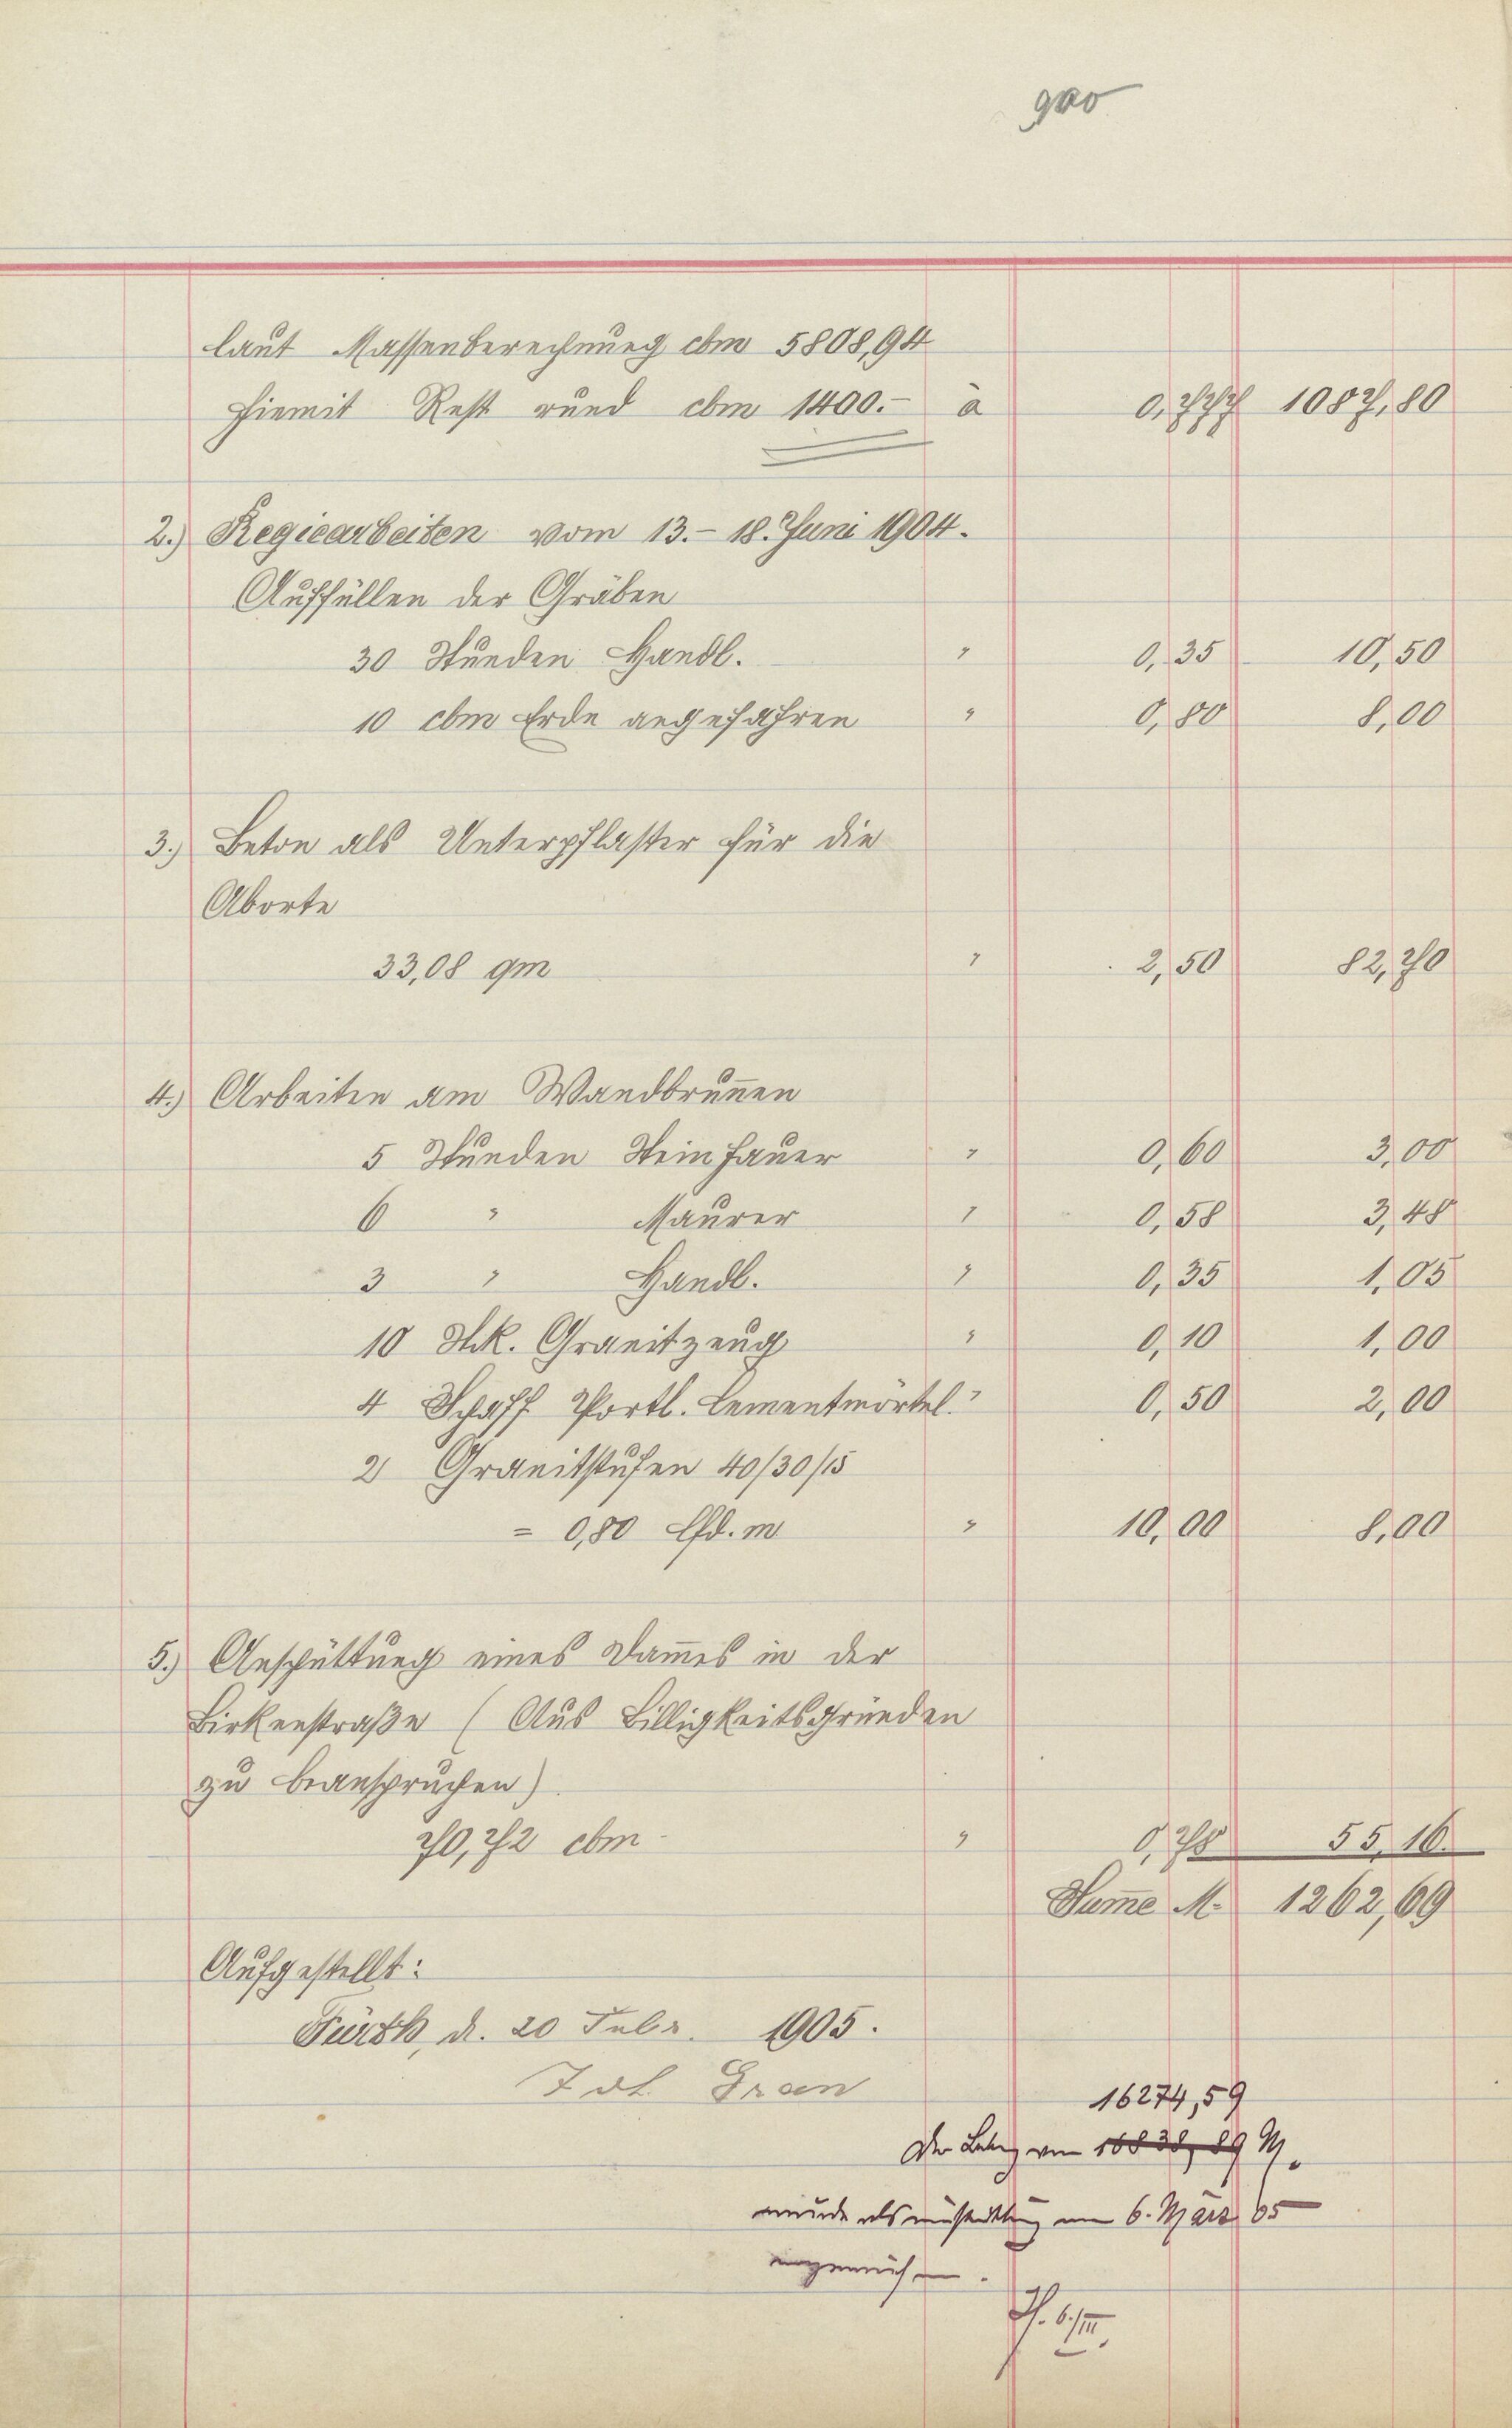 laut Massenberechnung cbm 5808,94
hiemit Rest rund cbm 1400.- à 0,777 1087,80
2.) Regiearbeiten vom 13.- 18. Juni 1904.
Auffüllen der Gräben
30 Stunden Handl. " 0,35 10,50
10 cbm Erde angefahren " 0,80 8,00
3.) Beton als Unterpflaster für die
Aborte
33,08 qm " 2,50 82,70
4.) Arbeiten am Wandbrun̄en
5 Stunden Steinhauer " 0,60 3,00
6 " Maurer " 0,58 3,48
3 " Handl. " 0,35 1,05
10 Stk. Granitzeug " 0,10 1,00
4 Schaff Portl. Cementmörtel. " 0,50 2,00
2 Granitstufen 40/30/15
= 0,80 lfd. m " 10,00 8,00
5.) Anschüttung eines Dam̄es in der
Birkenstraße (Aus Billigkeitsgründen
zu beanspruchen)
70,72 cbm " 0,78 55,16.
Sum̄e M. 1262,69
Aufgestellt:
Fürth, d. 20 Febr. 1905.
16274,59
Der Betrag von 16838,89 M.
wurde als am 6. März 05